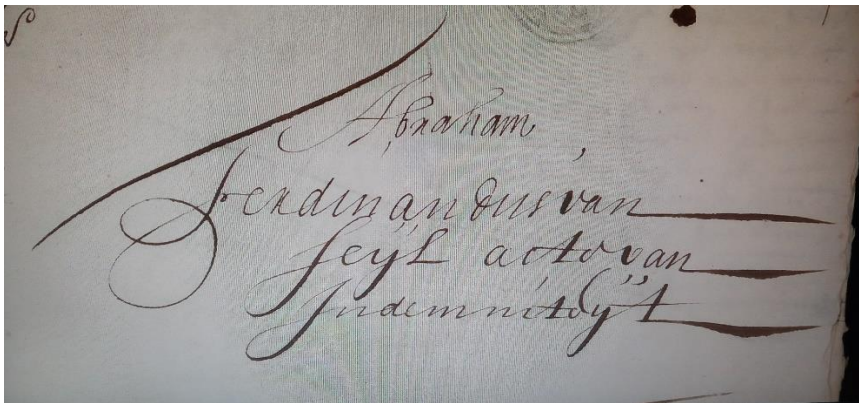 Abraham
Ferdinandus van
Seijl acto van
Indemnitoyt